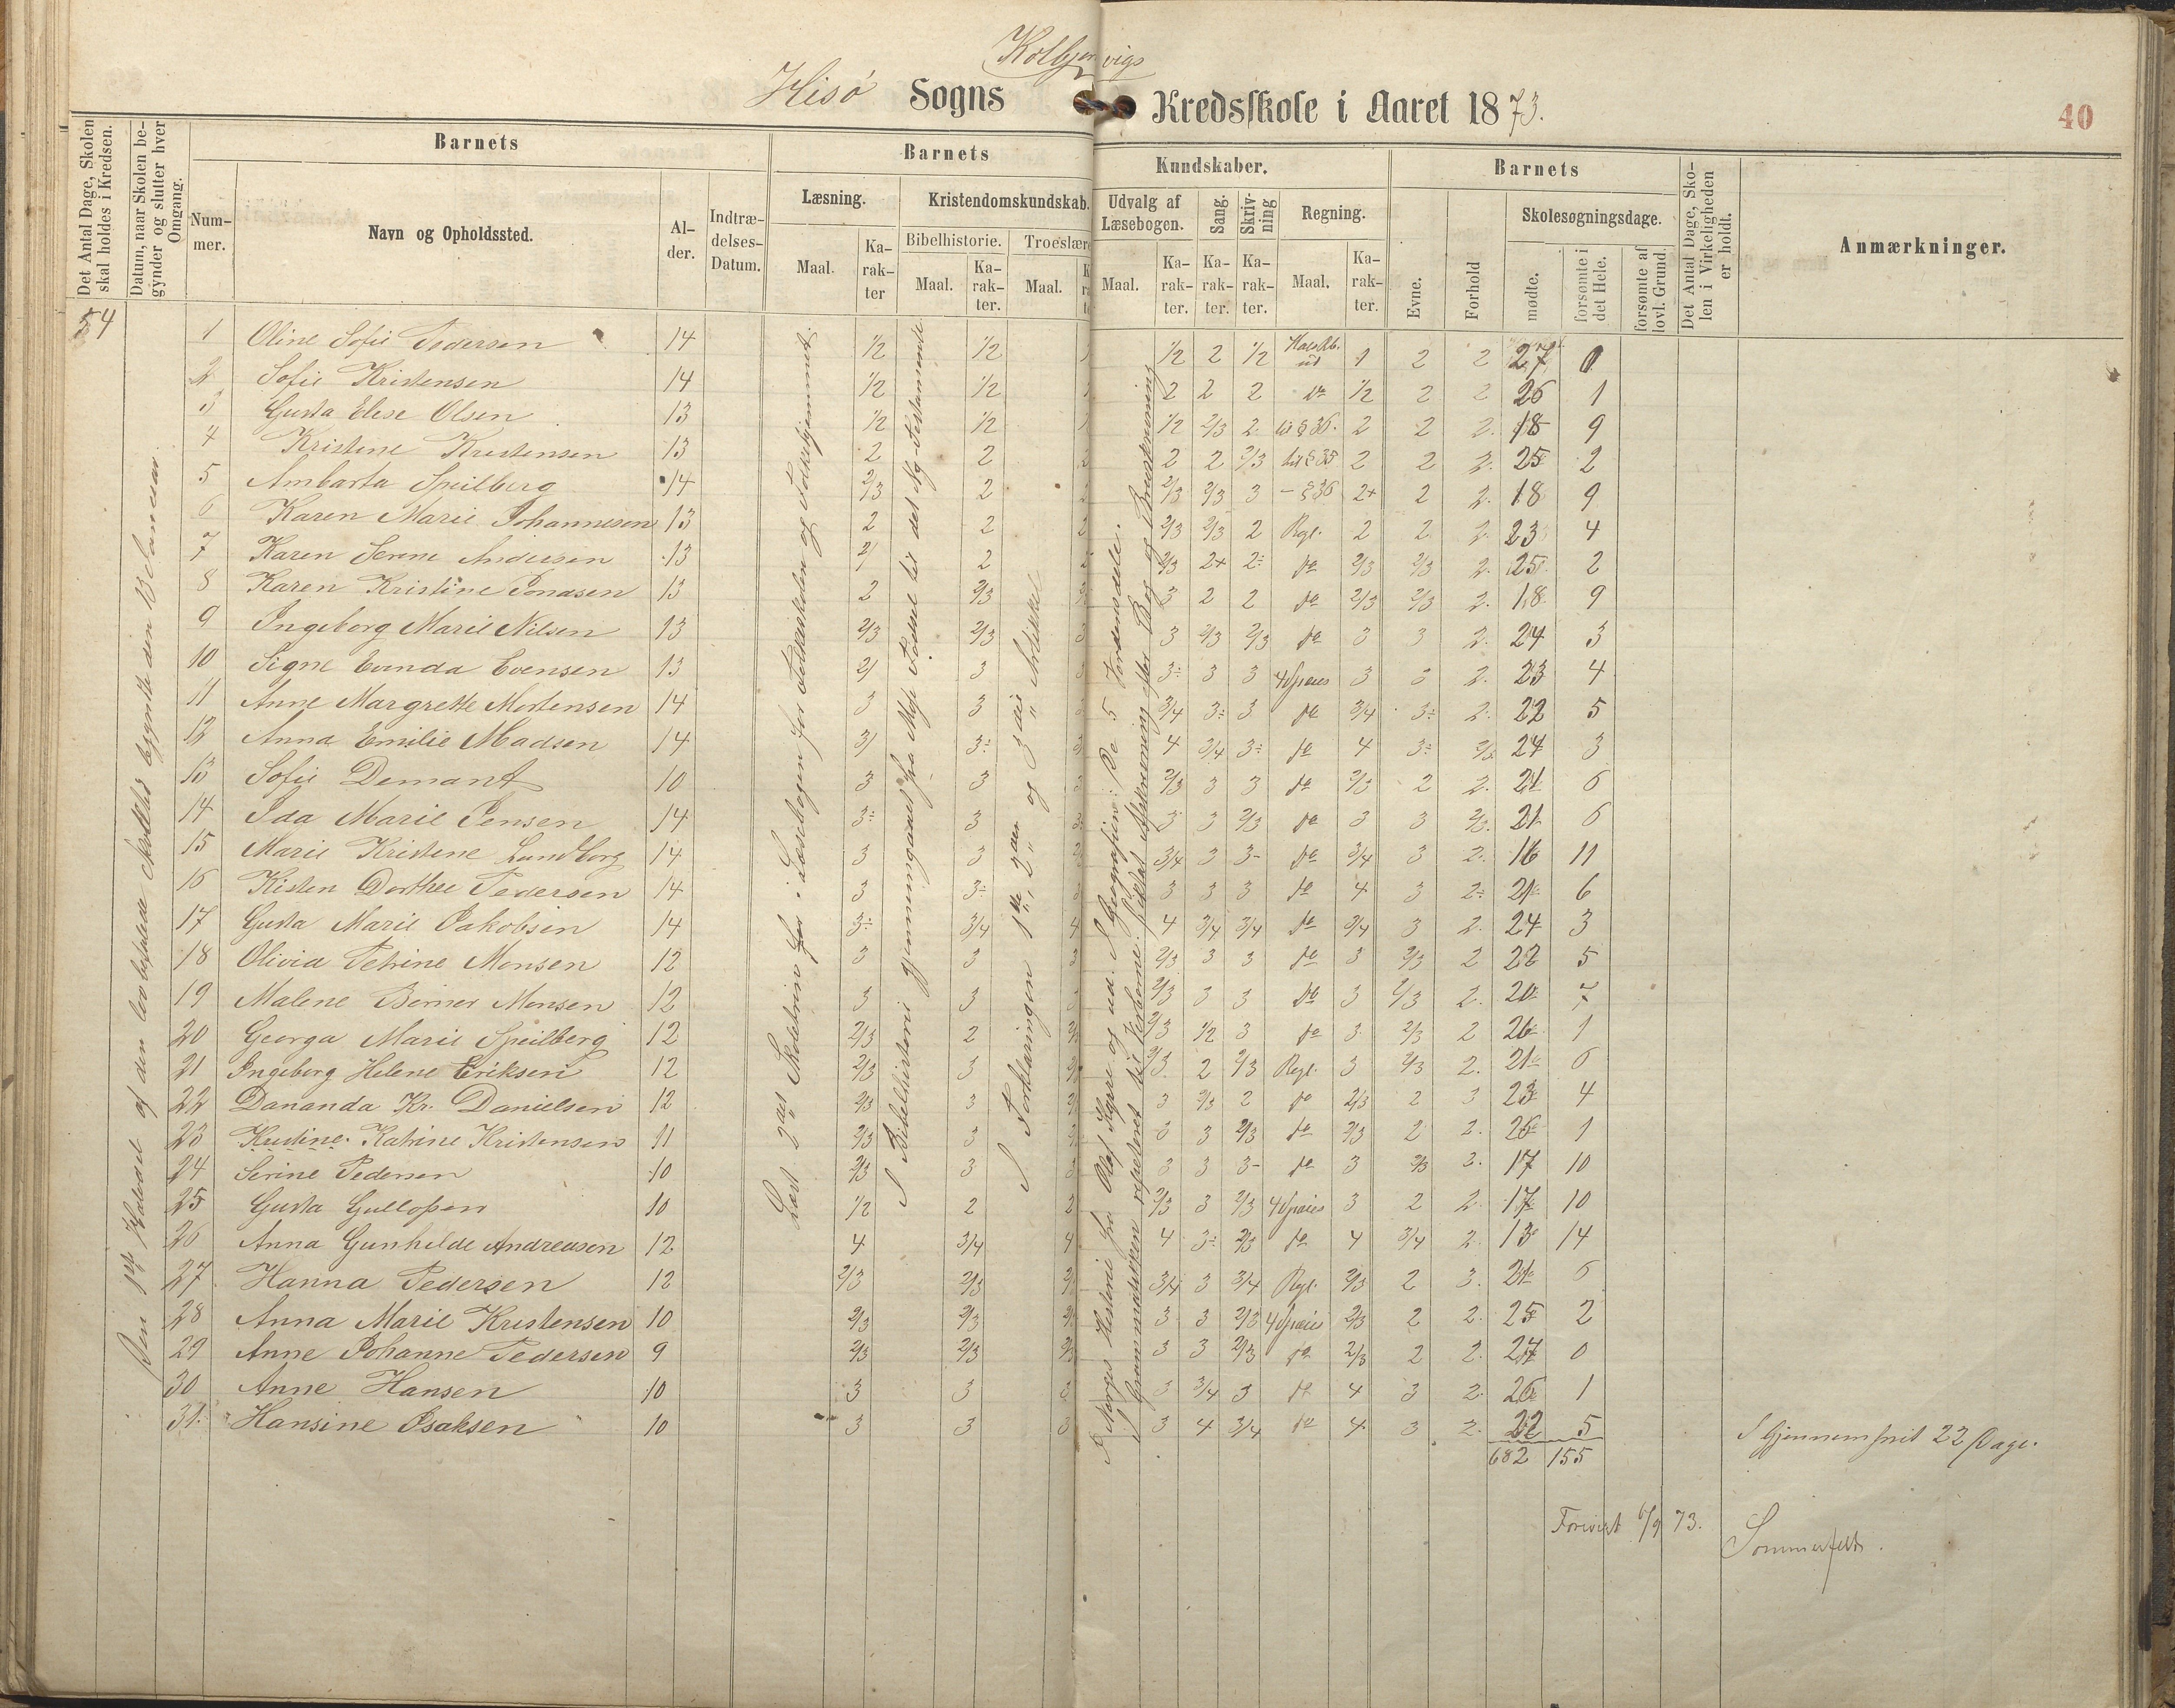 Kolbjørnvigs
Hisø Sogns Kredsskole i Aaret 1873.
40
Det Antal Dage, Skolen skal holdes i Kredsen.
Datum, naar Skolen begynder og slutter hver Omgang.
Barnets
Nummer.
Navn og Opholdssted.
Alder.
Indtrædelses-Datum.
Barnets Kundskaber.
Læsning.
Maal.
Karakter
Kristendomskundskab.
Bibelhistorie.
Maal.
Karakter.
Troeslære
Maal.
Udvalg af Læsebogen.
Maal.
Karakter.
Sang.
Karakter.
Skrivning
Karakter.
Regning.
Maal.
Karakter.
Barnets
Evne.
Forhold
Skolesøgningsdage.
mødte.
forsømte i det Hele.
forsømte af lovl. Grund.
Det Antal Dage, Skolen i Virkeligheden er holdt.
Anmærkninger.
54
1 Oline Sofie Pedersen 14 1/2 1/2 1/2 2 1/2 1 2 2 27 0
2 Sofie Kristensen 14 1/2 1/2 2 2 2 do 1/2 2 2 26 1
3 Gusta Elese Olsen 13 1/2 1/2 1/2 2/3 2 til § 36. 2 2 2. 18 9
4 Kristene Kristensen 13 2 2 2 2 2/3 til § 35 2 2 2. 25 2
5 Ambarta Speilberg 14 2/3 2 2/3 2/3 3 - § 36 2+ 2 2. 18 9
6 Karen Marie Johannesen 13 2 2 2/3 2/3 2 Rgl. 2 2 2. 23 4
7 Karen Serene Andersen 13 2/ 2 2/3 2+ 2÷ do 2/3 2/3 2. 25 2
8 Karen Kristine Jonasen 13 2 2/3 3 2 2 do 2/3 2/3 2. 18 9
9 Ingeborg Marie Nilsen 13 2/3 2/3 3 2/3 2/3 do 3 3 2. 24 3
10 Signe Evinda Evensen 13 2/ 3 3÷ 3 3 4 Spesies 3 3 2. 23 4
11 Anne Margrethe Mortensen 14 3 3 3/4 3÷ 3 do 3/4 3÷ 2. 22 5
12 Anna Emilie Madsen 14 3/ 3÷ 4 3/4 3÷ do 4 3÷ 2/3. 24 3
13 Sofie Demant 10 3 3 2/3 3 3 do 2/3 2 2. 21 6
14 Ida Marie Jensen 14 3÷ 3 3 3 2/3 do 3 3 2/3. 21 6
15 Marie Kristene Lundborg 14 3 3 3/4 3 3- do 3/4 3 2. 16 11
16 Kisten Dorthee Pedersen 14 3 3÷ 3 3 3 do 4 3 2÷ 21 6
17 Gusta Marie Jakobsen 14 3÷ 3/4 4 3/4 3/4 do 3/4 3 2. 24 3
18 Olivia Petrine Monsen 12 3 3 2/3 3 3 do 3 2/3 2 22 5
19 Malene Berner Monsen 12 3 3 2/3 3 3 do 3 2/3 2. 20 7
20 Georga Marie Speilberg 12 2/3 2 2/3 1/2 3 do 3 2/3 2 26 1
21 Ingeborg Helene Eriksen 12 2/3 3 2/3 2 2/3 Regl. 3 2/3 2. 21 6
22 Dananda Kr. Danielsen 12 2/3 3 3 2/3 2 do 2/3 2 3 23 4
23 Kristine Katrine Kristensen 11 2/3 3 3 3 2/3 do 2/3 2 2. 26 1
24 Serine Pedersen 10 2/3 3 3 3 3- do 3 2/3 2. 17 10
25 Gusta Gullofsen 10 1/2 2 2/3 3 2/3 4 Spesies 3 2 2. 17 10
26 Anna Gunhilde Andreasen 12 4 3/4 4 3÷ 2/3 do 4 3/4 2. 13 14
27 Hanna Pedersen 12 2/3 2/3 3/4 3 3/4 Rgl. 2/3 2 3. 21 6
28 Anna Marie Kristensen 10 2/3 2/3 3 3 2/3 4 Spesies 2/3 2 2. 25 2
29 Anne Johanne Pedersen 9 2/3 2/3 3 3 2/3 do 2/3 2 2. 27 0
30 Anne Hansen 10 3 3 3 3/4 3 do 4 3 2. 26 1
31. Hansine Isaksen 10 3 3 3 4 3/4 do 4 3 2. 22 5
682 155
I Gjennemsnit 22 Dage.
Forevist 6/9 73.
Sommerfelt.
Den 1ste Halvdel af den befalede Skoletid begyndte den 13de Januar.
Læst 2det Skoletrin for i Læsebogen for Folkeskolen og Folkehjemmet.
I Bibelhistorie gjennemgaaet fra Mose Fødsel til det Ny-Testamente
I Forklaringen 1ste, 2den og 3die Artikkel
I Norges Historie fra Olaf Kyrre og ud. I Geografien: De 5 Verdensdele.